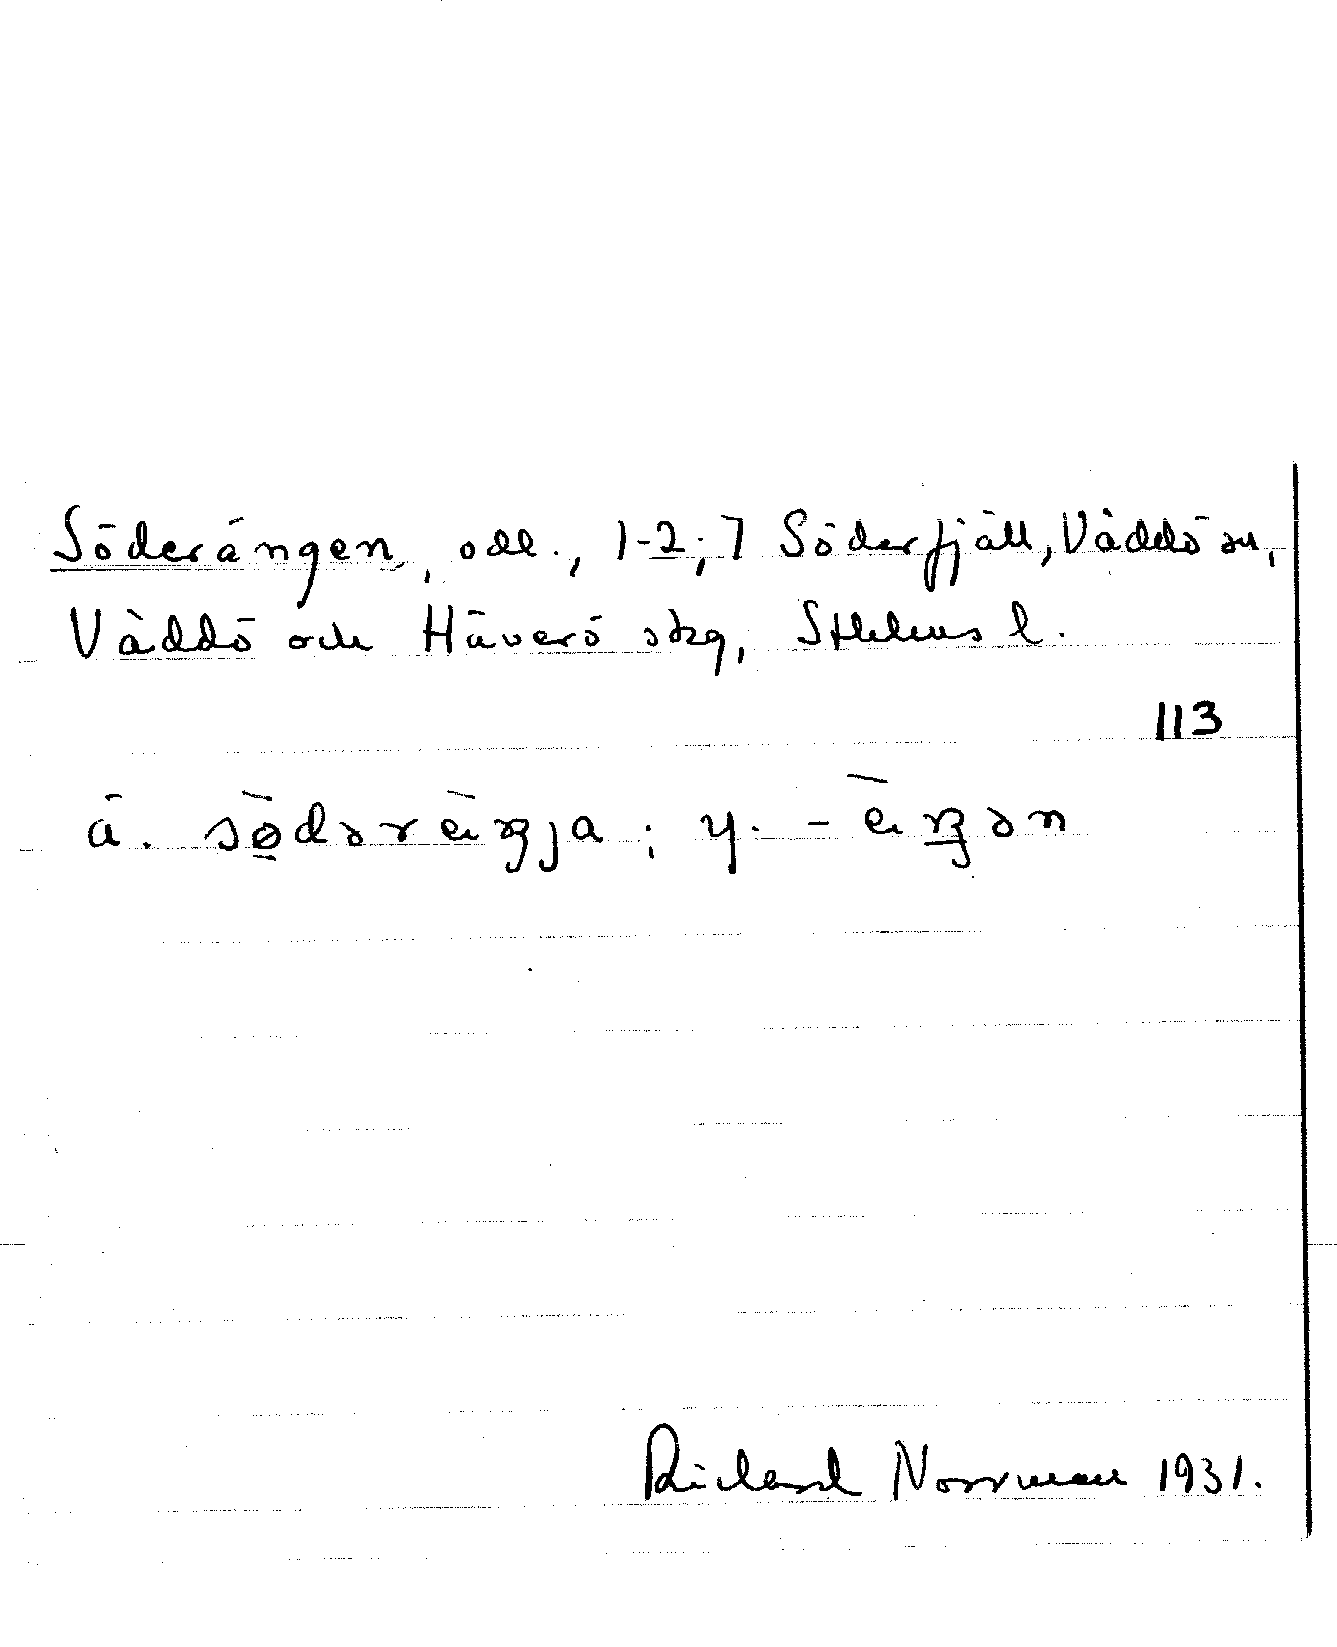 Söderängen, odl., 1-2; 7 Söderfjäll, Väddö sn,
Väddö och Häverö skg, Sthlms l.
113
ä. sø̀dərèŋja; y. -èŋən
Rickard Norrman 1931.